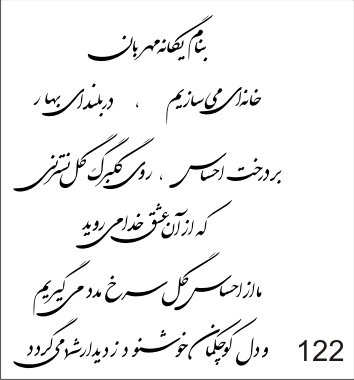 بنام یگانه مهربان
خانه‌ای می‌سازیم ، در بلندای بهار
بر درخت احساس ، روی گلبرگ گل نسترنی
که از آن عشق خدا می روید
ما از احساس گل سرخ مدد می گیریم
و دل کوچکمان خوشنود ز دیدار شما می گردد
122